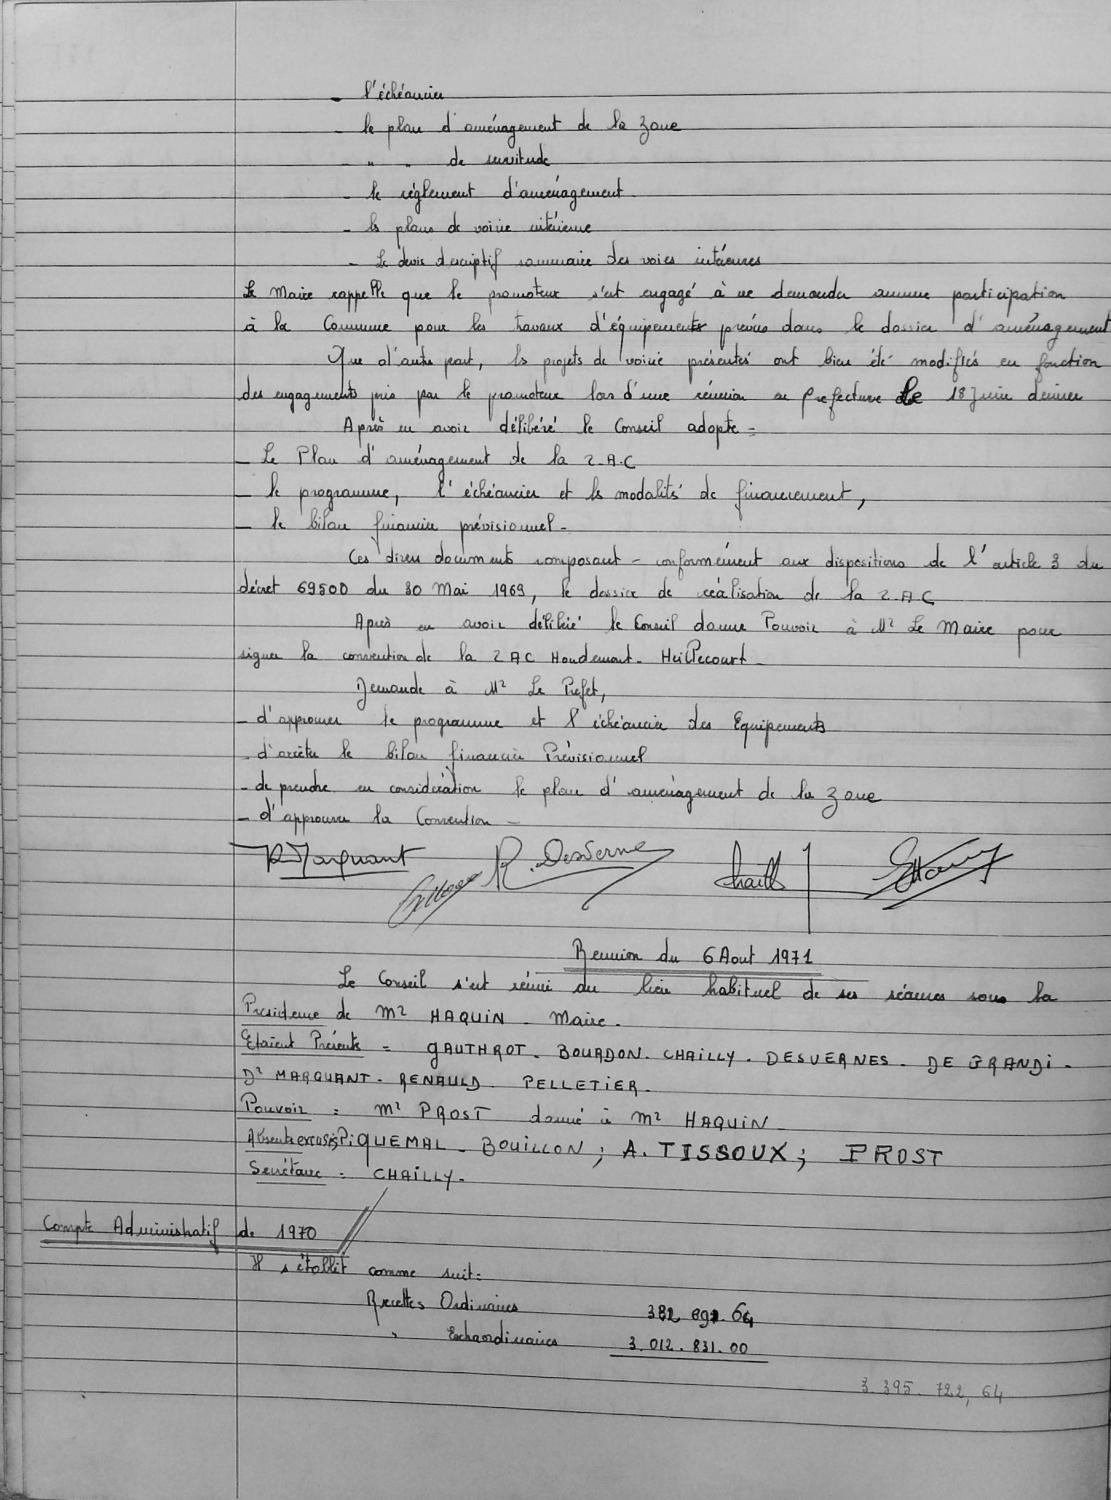 - l'échéancier
- le plan d'aménagement de la zone
- " " de servitude
- le réglement d'aménagement
- les plans de voirie intérieure
- Le devis descriptif sommaire des voies intérieures
Le Maire rappelle que le promoteur s'est engagé à ne demander aucune participation
à la Commune pour les travaux d'équipements prévus dans le dossier d'aménagement
Que d'autre part, les projets de voirie présentés ont bien été modifiés en fonction
des engagements pris par le promoteur lors d'une réunion en Prefecture Le 18 Juin dernier
Après en avoir délibéré le Conseil adopte =
- Le Plan d'aménagement de la Z.A.C
- le programme, l'échéancier et les modalités de financement,
- le bilan financier prévisionnel -
Ces divers documents composant - conformément aux dispositions de l'article 3 du
décret 69500 du 30 Mai 1969, le dossier de réalisation de la Z.A.C
Après en avoir délibéré le Conseil donne Pouvoir à Mr Le Maire pour
signer la convention de la ZAC Houdemont - Heillecourt -
Demande à Mr Le Prefet,
- d'approuver le programme et l'échéancier des Equipements
- d'arrêter le bilan financier Prévisionnel
- de prendre en considération le plan d'aménagement de la zone
- d'approuver la Convention -
Marquant R. Desverne Chailly
Reunion du 6 Aout 1971
Le Conseil s'est réuni au lieu habituel de ses séances sous la
Presidence de Mr HAQUIN - Maire -
Etaient Présents = GAUTHROT - BOURDON - CHAILLY - DESVERNES - DE GRANDI -
Dr MARQUANT - RENAULD - PELLETIER -
Pouvoir = Mr PROST donné à Mr HAQUIN
Absents excusés PIQUEMAL - BOUILLON ; A. TISSOUX ; PROST
Secrétaire = CHAILLY -
Compte Administratif de 1970
Il s'établit comme suit =
Recettes Ordinaires 382.891.64
" Extraordinaires 3.012.831.00
3.395.722,64